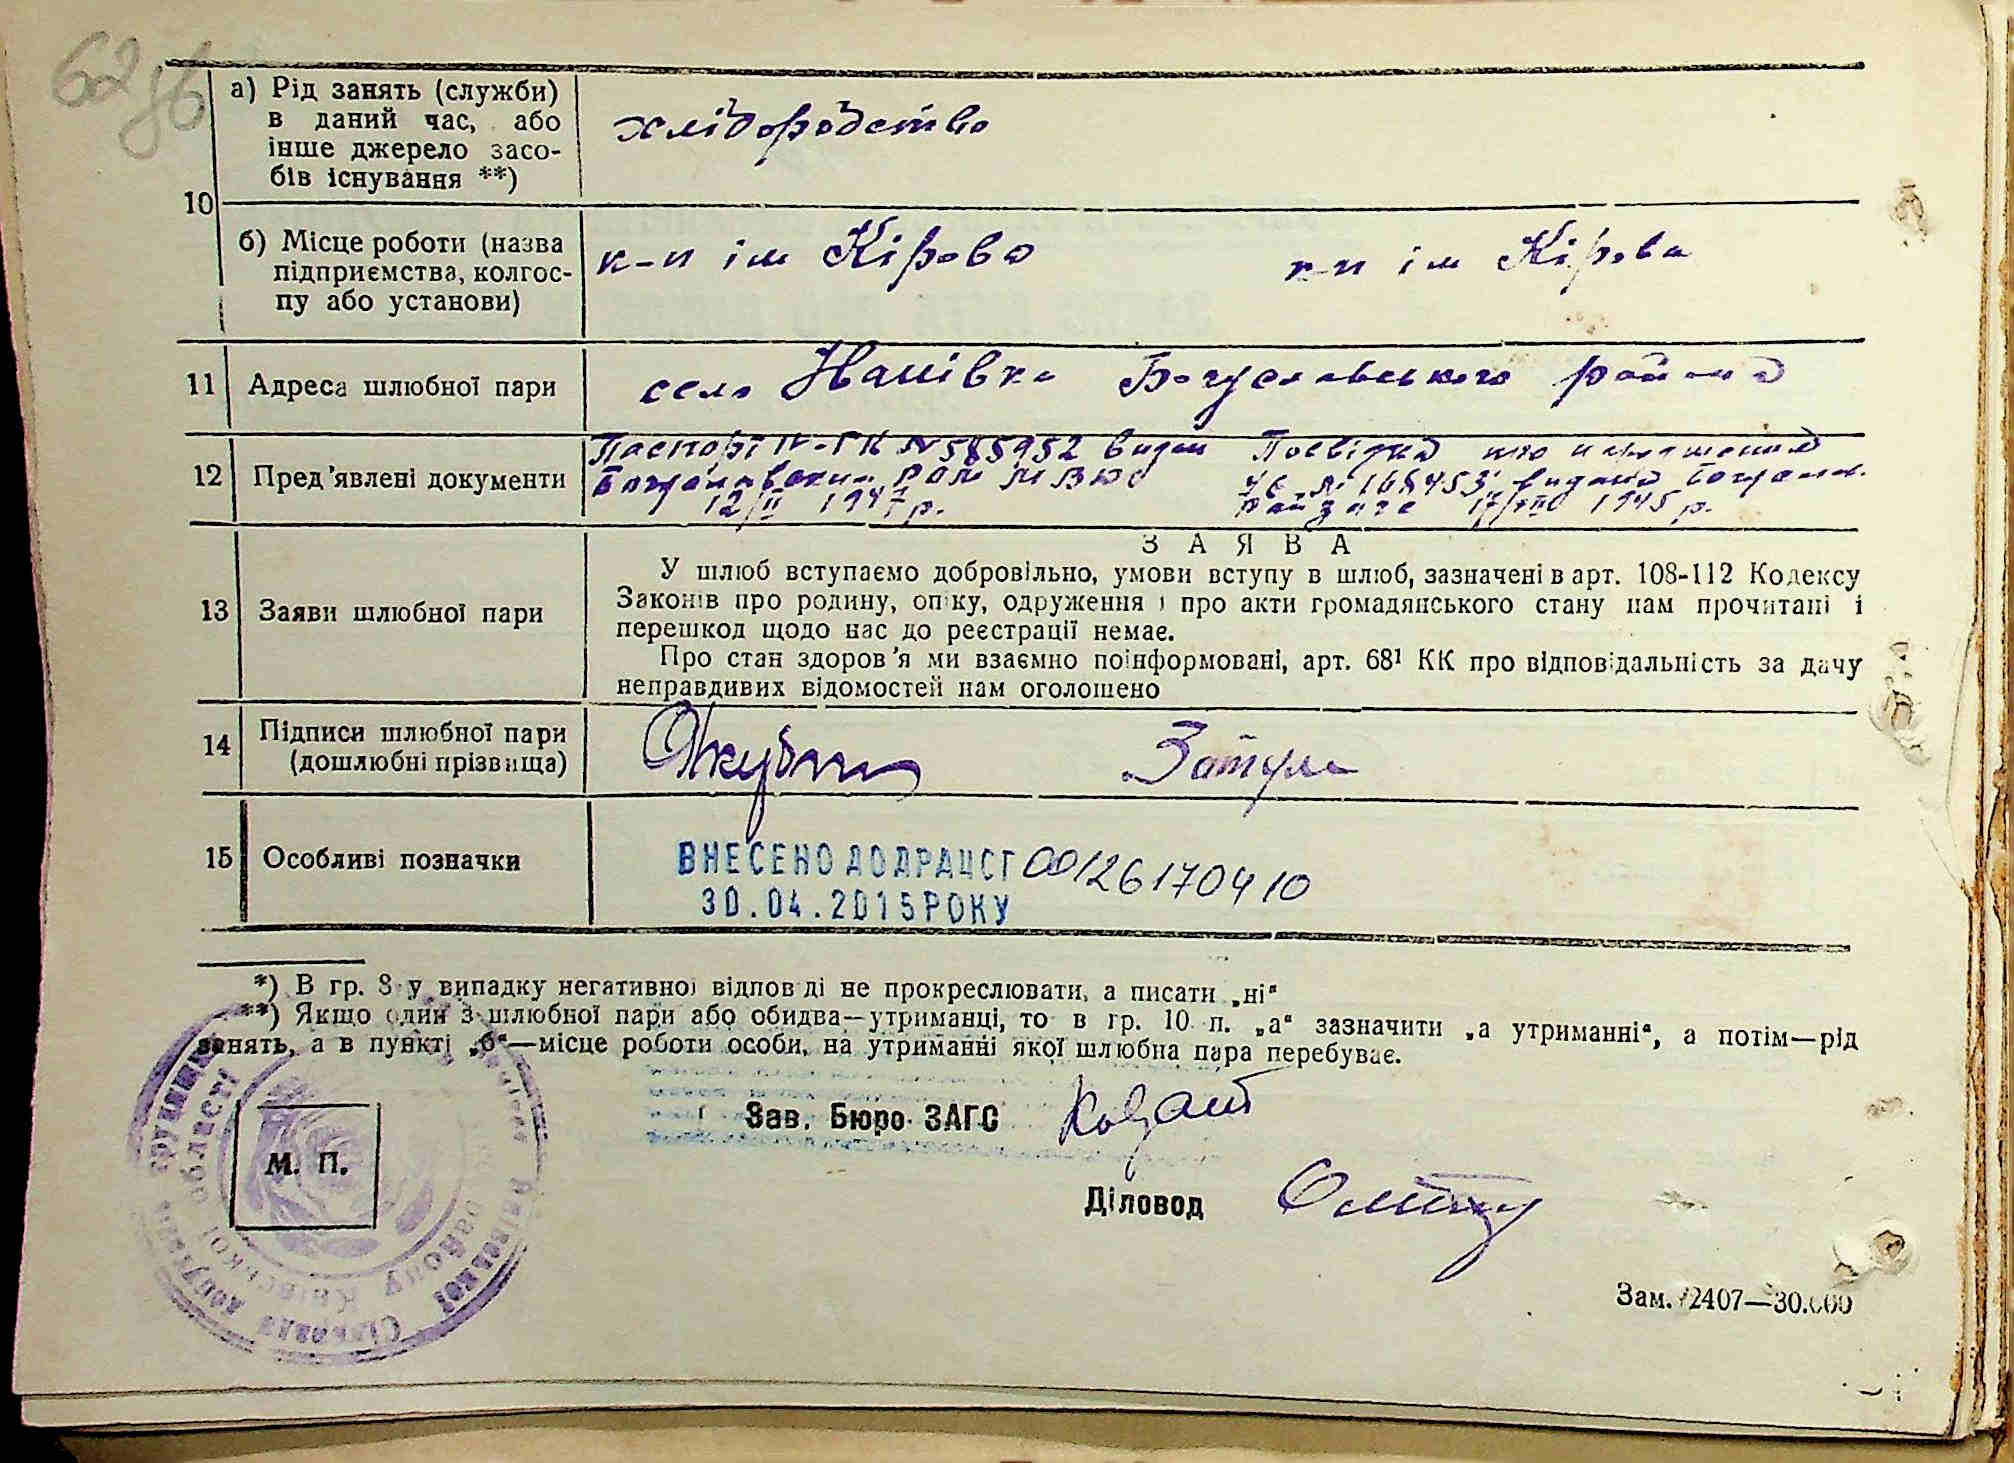 62 зв
10
а) Рід занять (служби)
в даний час, або
інше джерело засо-
бів існування **)
хліборобство
б) Місце роботи (назва
підприємства, колгос-
пу або установи)
к-п ім Кірова
к-п ім Кірова
11
Адреса шлюбної пари
село Богуславського района
12
Пред'явлені документи
Паспорт N 585952 видан
12/II 1947 р.
Посвідка про народження
168453 видана
17/VIII 1945 р.
13
Заяви шлюбної пари
ЗАЯВА
У шлюб вступаємо добровільно, умови вступу в шлюб, зазначені в арт. 108-112 Кодексу
Законів про родину, опіку, одруження і про акти громадянського стану нам прочитані і
перешкод щодо нас до реєстрації немає.
Про стан здоров'я ми взаємно поінформовані, арт. 68¹ КК про відповідальність за дачу
неправдивих відомостей нам оголошено
14
Підписи шлюбної пари
(дошлюбні прізвища)
15
Особливі позначки
ВНЕСЕНО ДО ДРАЦСГ 00126170410
30.04.2015 РОКУ
*) В гр. 8 у випадку негативної відповіді не прокреслювати, а писати „ні“
**) Якщо один з шлюбної пари або обидва—утриманці, то в гр. 10 п. „а“ зазначити „а утриманні“, а потім—рід
занять, а в пункті „б“—місце роботи особи, на утриманні якої шлюбна пара перебуває.
Зав. Бюро ЗАГС
М. П.
Діловод
Зам. 2407—30.000